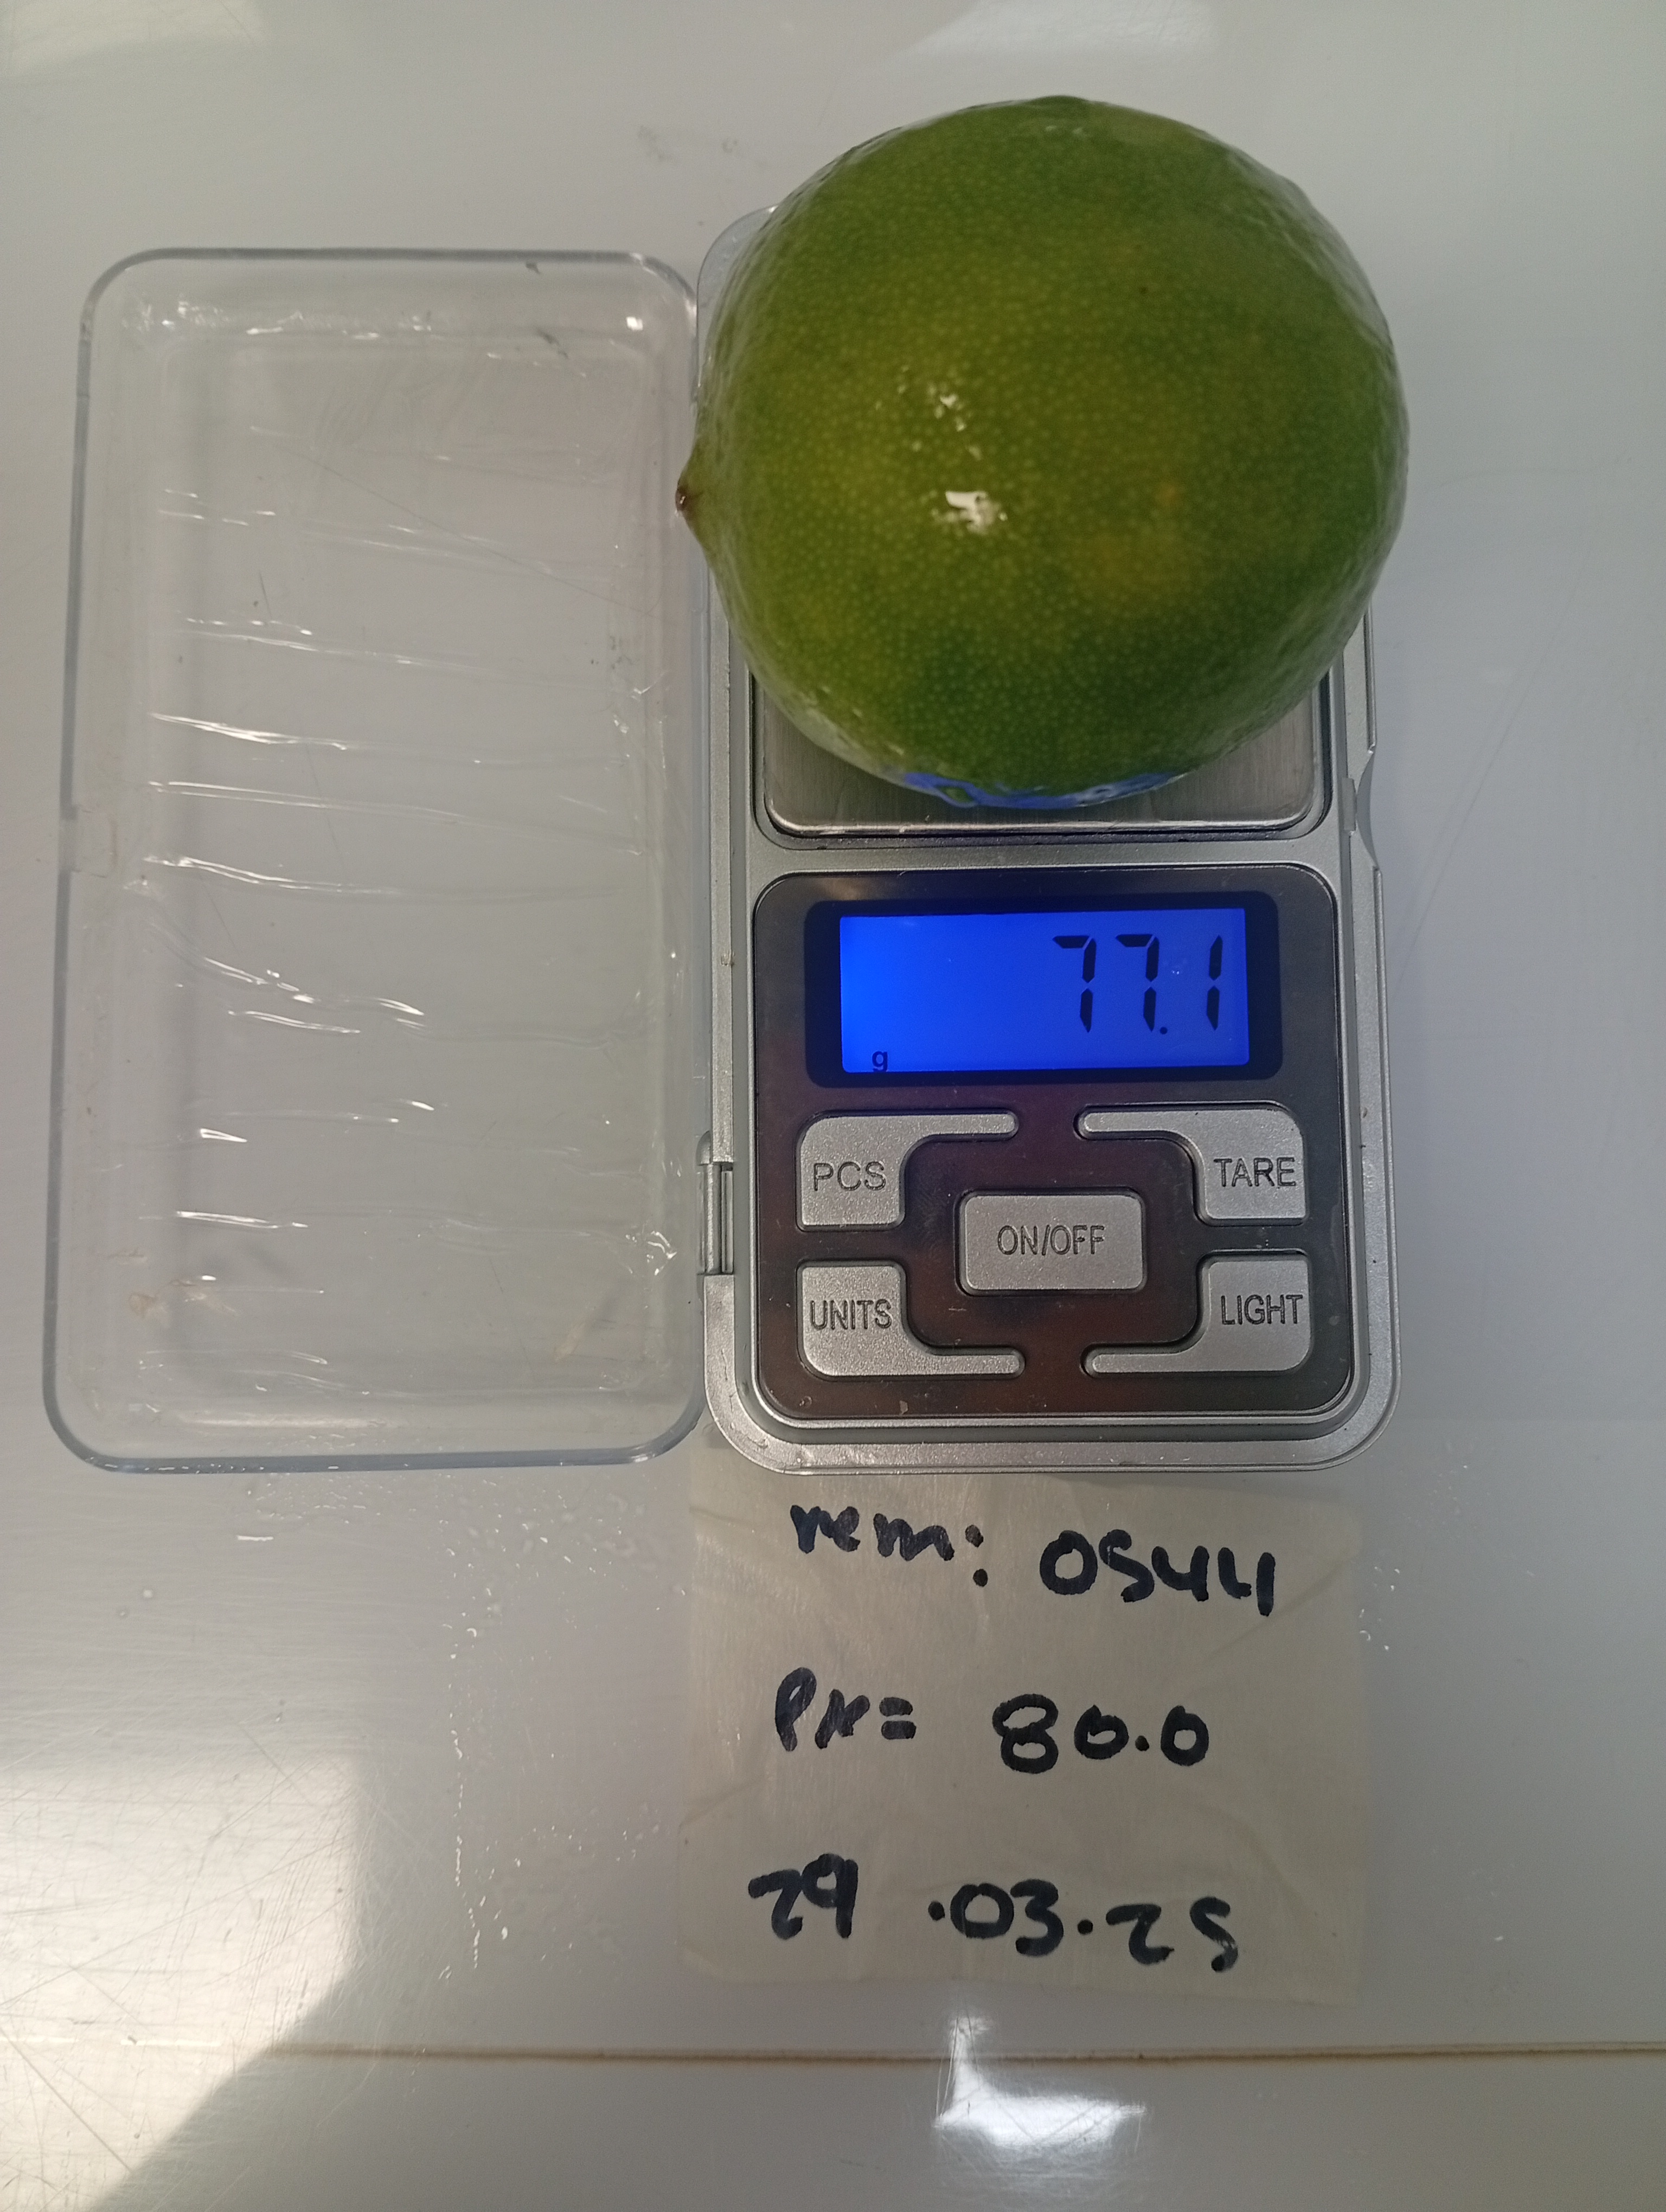 77.1
g
PCS
TARE
ON/OFF
UNITS
LIGHT
rem: 0544
PN= 80.0
29.03.25